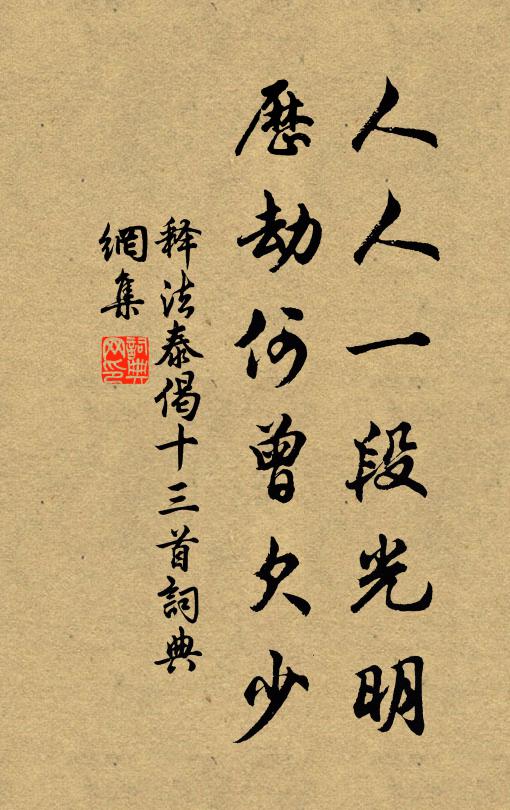 人人一段光明
歷劫何曾欠少
释法泰偈十三首詞典
網集
詞典
网印